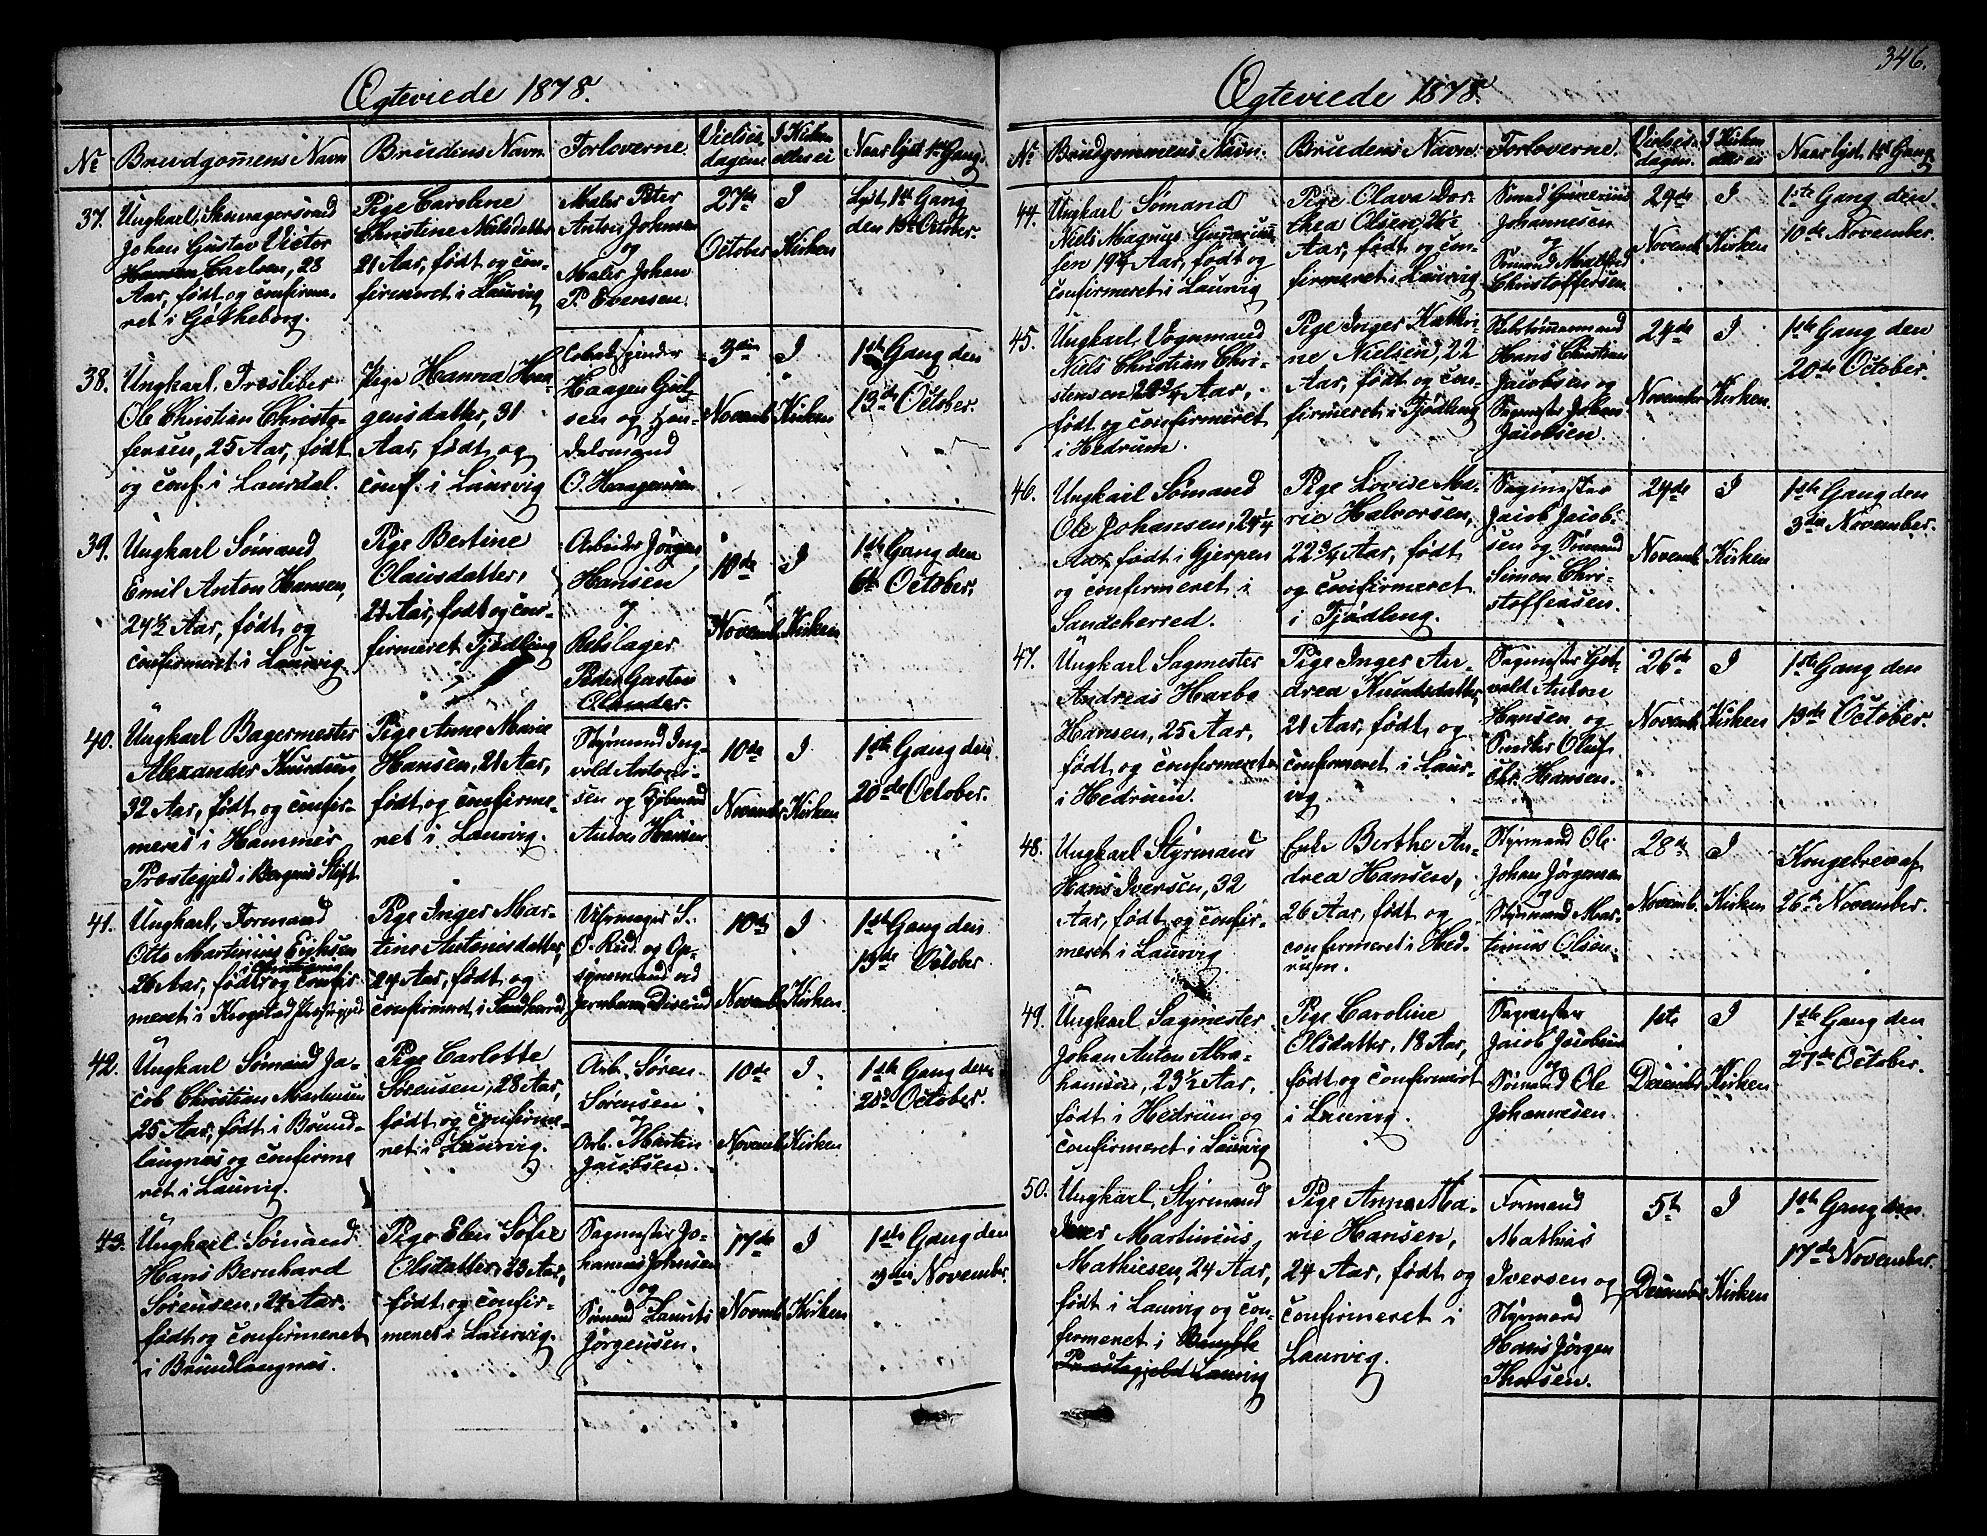 Ægteviede 1878.
No
Brudgommens Navn
Brudens Navn
Forloverne
Vielses
dagen
I Kirken
eller ei
Naar lyst 1ste Gang
37.
Ungkarl,
Johan Gustav Victor
Carlsen, 28
Aar, født og confirme-
ret i Gøtheborg.
Pige Caroline
Christine Nielsdatter
21 Aar, født og con-
firmeret i Laurvig
Maler Peter
Anton Johnsen
og
Maler Johan
P. Evensen.
27de
October
I
Kirken
Lyst 1ste Gang
den 13de October.
38.
Ungkarl,
Ole Christian Christo-
fersen, 25 Aar, født
og conf. i Laurdal.
Pige Hanna Haa-
gensdatter, 31
Aar, født og
conf. i Laurvig
Haagen
sen og Han-
delsmand
O. Haagensen
3die
Novemb.
I
Kirken
1ste Gang den
13de October.
39.
Ungkarl Sømand
Emil Anton Hansen,
24½ Aar, født og
confirmeret i Laurvig
Pige Bertine
Olausdatter,
21 Aar, født og con-
firmeret Tjødling
Arbeider Jørgen
Hansen
og
Rebslager
Peder
10de
Novemb.
I
Kirken
1ste Gang den
6te October.
40.
Ungkarl Bagermester
Alexander Knudsen
32 Aar, født og confir-
meret i Hammer
Præstegjeld i Bergens Stift
Pige Anne Marie
Hansen, 21 Aar,
født og confirme-
ret i Laurvig.
Styrmand Ing-
vald Antoni-
sen og
Anton Hansen
10de
Novemb.
I
Kirken
1ste Gang den
20de October.
41.
Ungkarl, Formand
Otto Martinius Eriksen
i Christiania
26 Aar, født og confir
meret i Krogstad Præstegjeld
Pige Inger Mar-
tine Antonisdatter,
24 Aar, født og
confirmeret i Sandeherred
O. Ruud og Op-
synsmand ved
10de
Novemb.
I
Kirken
1ste Gang den
13de October
42.
Ungkarl Sømand Ja-
cob Christian Martinsen
25 Aar, født i Brund-
langnæs og confirme
ret i Laurvig.
Pige Carlotte
Sørensen, 28 Aar,
født og confirme-
ret i Laurvig.
Arb. Søren
Sørensen
Arb. Martin
Jacobsen.
10de
Novemb.
I
Kirken
1ste Gang den
20de October.
43.
Ungkarl Sømand
Hans Bernhard
Sørensen, 24 Aar.
født og confirmeret
i Brundlangnæs.
Pige Elen Sofie
Olsdatter, 23 Aar,
født og confir-
meret i Laurvig.
Sagmester Jo-
hannes Johnsen
og
Sømand Laurits
Jørgensen.
17de
Novemb.
I
Kirken
1ste Gang den
3die November.
346.
Ægteviede 1878.
No
Brudgommens Navn.
Brudens Navn.
Forloverne.
Vielses-
dagen.
I Kirken
eller ei
Naar lyst, 1ste Gang
44.
Ungkarl Sømand
Niels Magnus Gunerius-
sen 19¾ Aar, født og
confirmeret i Laurvig
Pige Olava Dor-
thea Olsen, 26½
Aar, født og con-
firmeret i Laurvig
Sømand Gunerius
Johannesen
og
Sømand
Christoffersen
24de
Novemb.
I
Kirken
1ste Gang den
10de November.
45.
Ungkarl Vognmand
Niels Christian Chri-
stensen 20¾ Aar,
født og confirmeret
i Hedrum.
Pige Inger Kathri-
ne Nielsen, 22
Aar, født og con-
firmeret i Tjødling
Hans Christian
Jacobsen og
Sagmester Johan
Jacobsen.
24de
November
I
Kirken.
1ste Gang den
20de October.
46.
Ungkarl Sømand
Ole Johansen, 24¼
Aar, født i Gjerpen
og confirmeret i
Sandeherred.
Pige Lovise Ma-
rie Halvorsen,
22¾ Aar, født
og confirmeret
i Tjødling.
Sagmester
Jacob Jacob-
sen og Sømand
Simon Chri-
stoffersen.
24de
Novemb.
I
Kirken
1ste Gang den
3die November.
47.
Ungkarl Sagmester
Andreas Harbo
Hansen, 25 Aar,
født og confirmeret
i Hedrum.
Pige Inger An-
drea Knudsdatter,
21 Aar, født og
confirmeret i Laur-
vig.
Sagmester Got-
vald Anton
Hansen og
Snedker Oluf
Chr. Hansen.
26de
Novemb.
I
Kirken
1ste Gang den
13de October.
48.
Ungkarl Styrmand
Hans Iversen, 32
Aar, født og confir-
meret i Laurvig
Enke Berthe An-
drea Hansen,
26 Aar, født og
confirmeret i Hed-
rum.
Styrmand Ole
Johan Jørgensen
og
Styrmand Mar-
tinius Olsen.
28de
Novemb.
I
Kirken
Kongebrev af
26de November.
49.
Ungkarl Sagmester
Johan Anton Abra-
hamsen, 23½ Aar,
født i Hedrum og
confirmeret i Laurvig
Pige Caroline
Olsdatter, 18 Aar,
født og confirmeret
i Laurvig.
Sagmester
Jacob Jacobsen
og
Sømand Ole
Johannesen.
1ste
December
I
Kirken
1ste Gang den
27de October.
50.
Ungkarl, Styrmand
Iver Martinius
Mathiesen, 24 Aar,
født i Laurvig og con-
firmeret i Bamble
Præstegjeld Laurvig
Pige Anna Ma-
rie Hansen,
24 Aar, født og
confirmeret i
Laurvig.
Formand
Mathias
Iversen og
Styrmand
Hans Jørgen
Thorsen.
5te
December
I
Kirken
1ste Gang den
17de November.